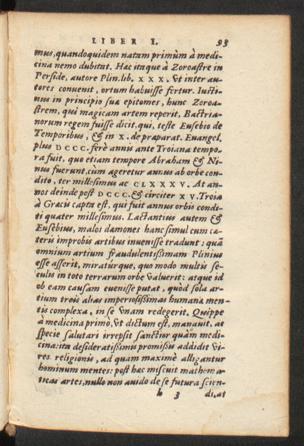 LIBER I. 93
mus, quandoquidem natam primùm à medi-
cina nemo dubitat. Hæc itaque à Zoroastre in
Perside, autore Plin. lib. XXX. vt inter au-
tores conuenit, ortum habuisse fertur. Iusti-
nus in principio suæ epitomes, hunc Zoroa-
strem, qui magicam artem reperit, Bactria-
norum regem fuisse dicit, qui, teste Eusebio de
Temporibus, & in x. de præparat. Euangel.
plus DCCC. ferè annis ante Troiana tempo-
ra fuit, quo etiam tempore Abraham & Ni-
nus fuerunt, cùm ageretur annus ab orbe con-
dito, ter millesimus ac CLXXXV. At an-
nos deinde post DCCC. & circiter XV. Troia
à Græcis capta est, qui fuit annus orbis condi-
ti quater millesimus. Lactantius autem &
Eusebius, malos dæmones hanc simul cum cæ-
teris improbis artibus inuenisse tradunt: quā
omnium artium fraudulentissimam Plinius
esse asserit, miraturque, quo modo multis se-
culis in toto terrarum orbe valuerit: atque id
ob eam causam euenisse putat, quòd sola ar-
tium treis alias imperosissimas humanæ men-
tis complexa, in se vnam redegerit. Quippe
à medicina primò, vt dictum est, manauit, ac
specie salutari irrepsit sanctior quàm medi-
cina: ita desideratissimis promissis addidit vi-
res religionis, ad quam maximè alligantur
hominum mentes: post hæc miscuit mathema-
ticas artes, nullo non auido de se futura scien-
b 3 di, at